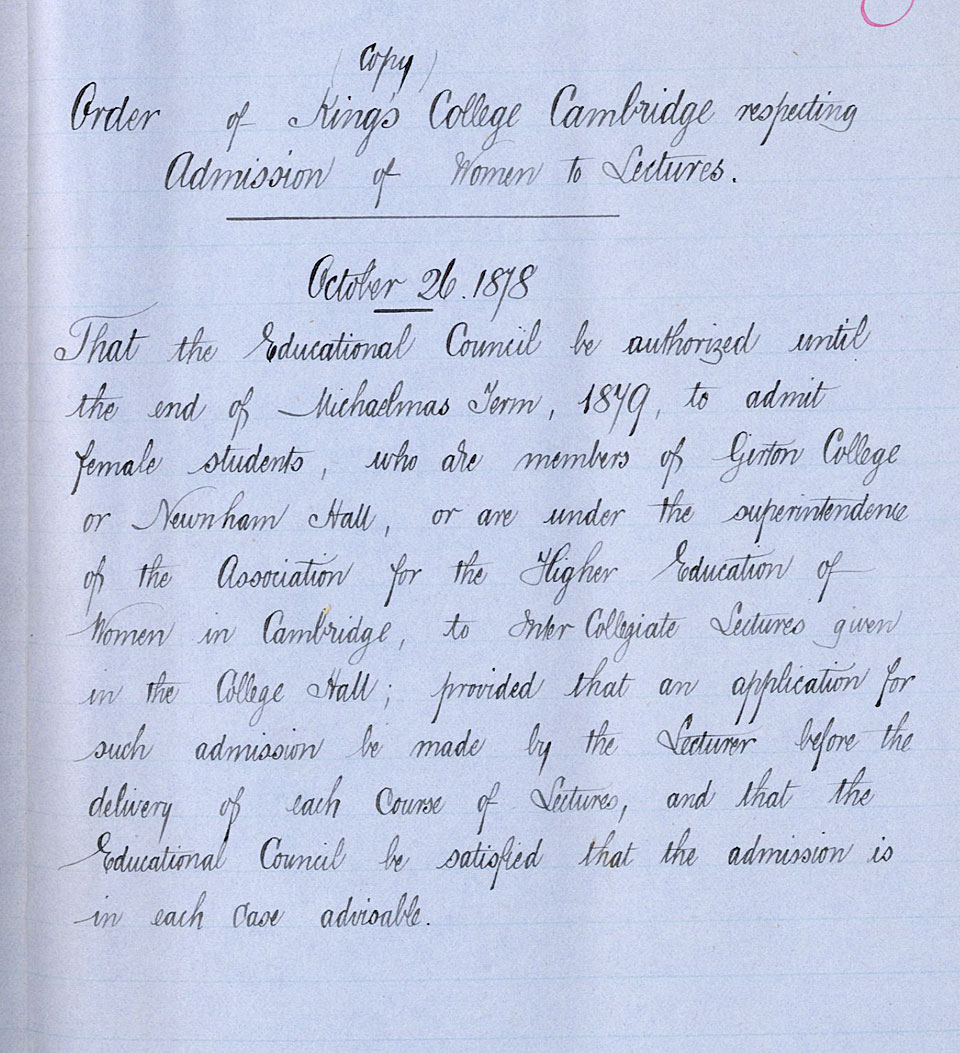 (Copy)
Order of King's College Cambridge respecting
Admission of Women to Lectures.
October 26. 1878
That the Educational Council be authorized until
the end of Michaelmas Term, 1879, to admit
female students, who are members of Girton College
or Newnham Hall, or are under the superintendence
of the Association for the Higher Education of
Women in Cambridge, to Inter Collegiate Lectures given
in the College Hall; provided that an application for
such admission be made by the Lecturer before the
delivery of each Course of Lectures, and that the
Educational Council be satisfied that the admission is
in each case advisable.